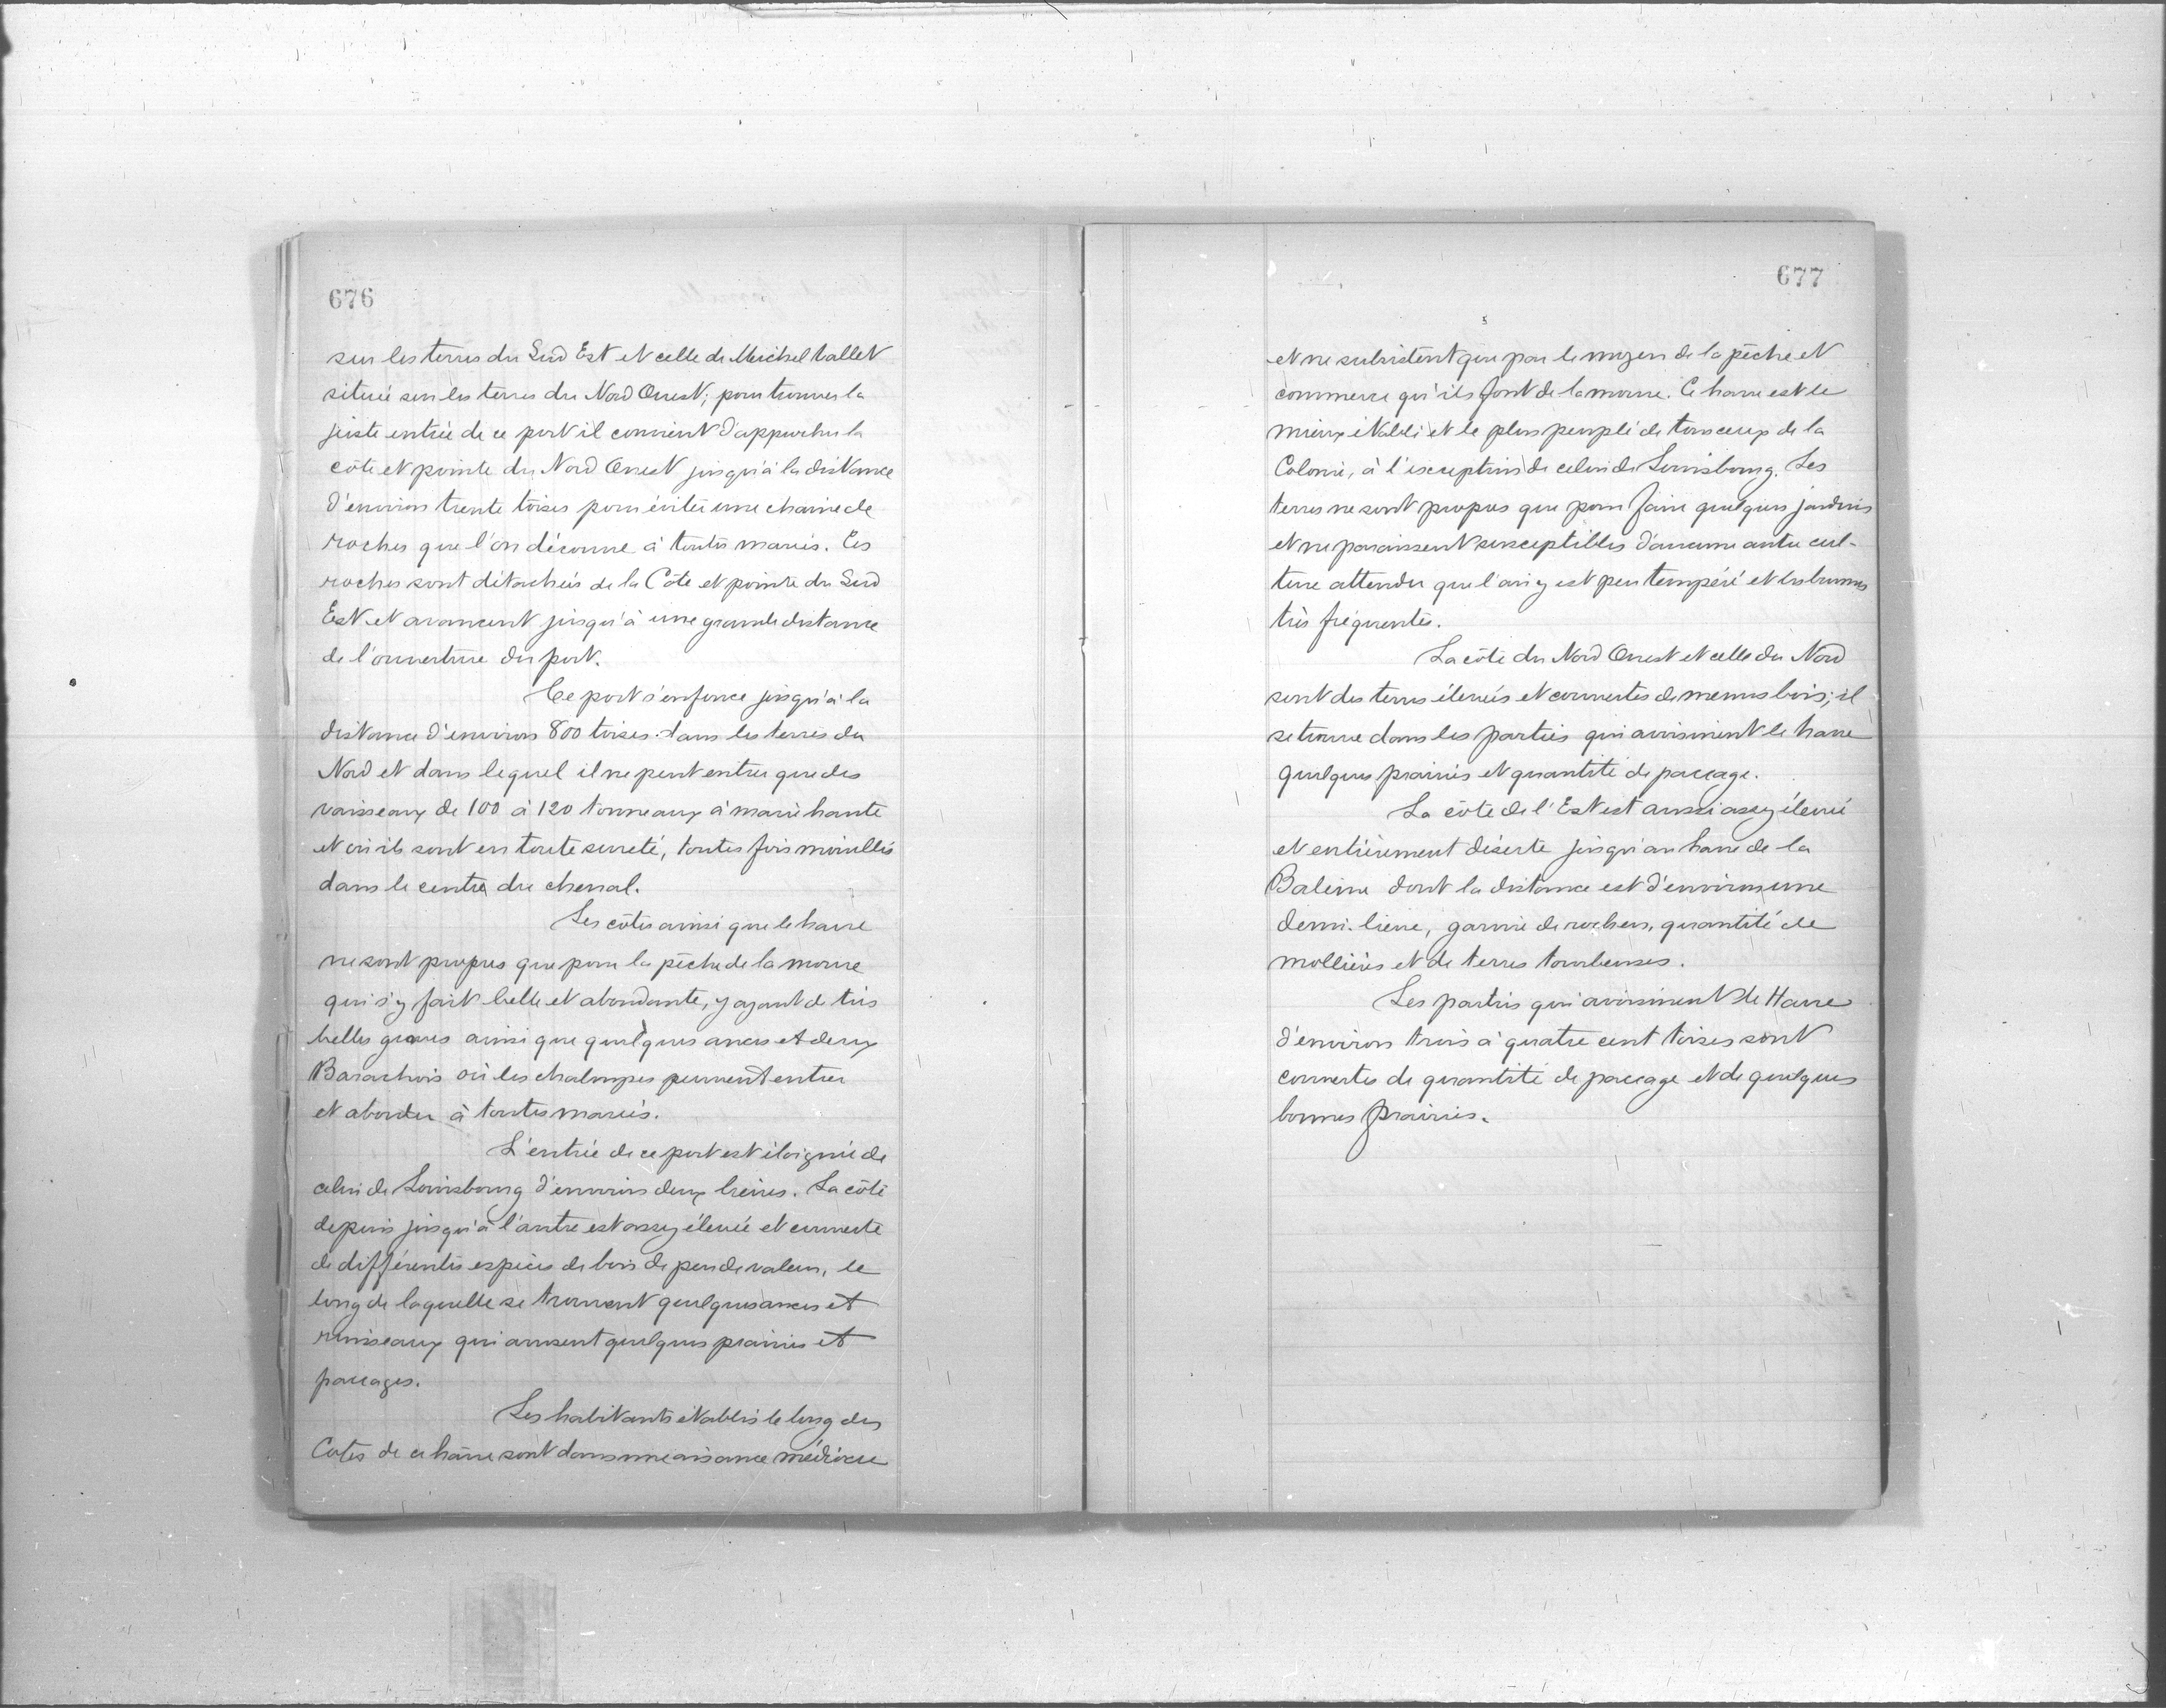 676
sur les terres du Sud Est et celle de Michel Vallet
située sur les terres du Nord Ouest; pour trouver la
juste entrée de ce port il convient d'approcher la
côte et pointe du Nord Ouest jusqu'à la distance
d'environ trente toises pour éviter une chaine de
roches que l'on découvre à toutes marées. Ces
roches sont détachées de la Côte et pointe du Sud
Est et avancent jusqu'à une grande distance
de l'ouverture du port.
Ce port s'enfonce jusqu'à la
distance d'environ 800 toises dans les terres du
Nord et dans lequel il ne peut entrer que des
vaisseaux de 100 à 120 tonneaux à marée haute
et où ils sont en toute sureté, toutes fois mouillés
dans le centre du chenal.
Les côtes ainsi que le havre
ne sont propres que pour la pêche de la morue
qui s'y fait belle et abondante, y ayant de très
belles graves ainsi que quelques ances et deux
Barachois où les chaloupes peuvent entrer
et aborder à toutes marées.
L'entrée de ce port est éloignée de
celui de Louisbourg d'environ deux lieues. La côte
depuis jusqu'à l'autre est assez élevée et couverte
de différentes espèces de bois de peu de valeur, le
long de laquelle se trouvent quelques ances et
ruisseaux qui arrosent quelques prairies et
paccages.
Les habitants établis le long des
Cotes de ce hâvre sont dans une aisance médiocre
677
et ne subsistent que par le moyen de la pêche et
commerce qu'ils font de la morue. Ce havre est le
mieux établi et le plus peuplé de tous ceux de la
Colonie, à l'exception de celui de Louisbourg. Les
terres ne sont propres que pour faire quelques jardins
et ne paraissent susceptibles d'aucune autre cul-
ture attendu que l'air y est peu tempéré et les brumes
très fréquentes.
La côte du Nord Ouest et celle du Nord
sont des terres élevées et couvertes de menus bois; il
se trouve dans les parties qui avoisinent le havre
quelques prairies et quantité de paccage.
La côte de l'Est est aussi assez élevée
et entièrement déserte jusqu'au havre de la
Baleine dont la distance est d'environ une
demi-lieue, garnie de rochers, quantité de
mollières et de terres tourbeuses.
Les parties qui avoisinent le Havre
d'environ trois à quatre cent toises sont
couvertes de quantité de paccage et de quelques
bonnes prairies.